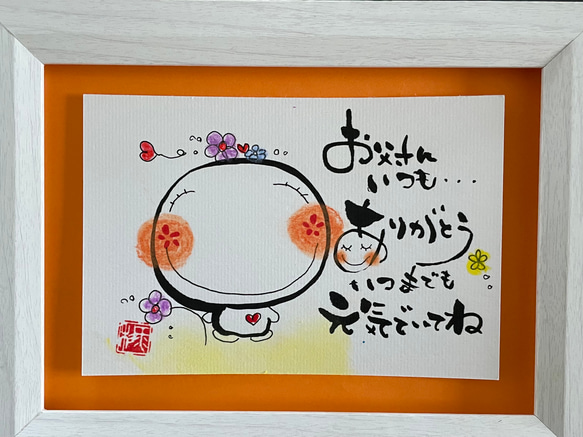 お父さん
いつも・・・
ありがとう
いつまでも
元気でいてね